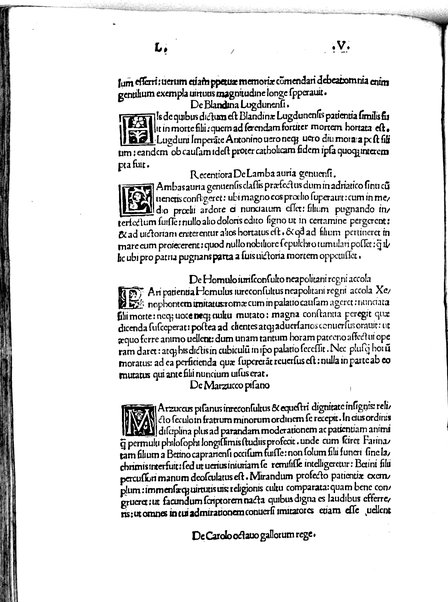 L. .V.
lum efferri: uerum etiam ppetuæ memoriæ cũmendari debeat omnia enim
gentilium exempla uirtutis magnitudine longe supperauit.
De Blandina Lugdunensi.
HIs de quibus dictum est Blandinæ Lugdunensis patientia similis fu
it in morte filii: quem ad serendam fortiter mortem hortata est.
Lugduni Imperãte Antonino uero neq; uero diu morata pͨst fili
um: eandem ob causam idest proter catholicam fidem ipsa quoq; interem
pta fuit.
Recentiora De Lamba auria genuensi.
LAmbas auria genuensis classis præfectus dum in adriatico sinu cũ
uenetis confligeret: ubi magno eos prœlio superaut: cum in me
dio prœlii ardore ei nunciatum esset: filium pugnando in-
terfectum fuisse: nullo alio doloris edito signo ut in certamine pergerent:
& ad uictoriam eniterentur alios hortatus est. & qd ad filium pertineret in
mare eum proiecerent: quod nullo nobiliore sepulchro tumulari posset: q̃ il-
lic ubi pro patria pugnans parta a suis uictoria mortem oppetisset.
De Homulo iurisconsulto neapolitani regni accola
PAri patientia Homulus iureconsultus neapolitani regni accola Xe
nophontem imitatus romæ cum in palatio causam ageret: nunciata
filii morte: neq; uoce neq; uultu mutato: magna constantia peregit quæ
dicenda susceperat: postea ad clientes atq; aduersarios conuersus orauit: ut
æquo ferre animo uellent: dum unam tantum horam paterno affectui ope
ram daret: atq; his dictis in cubiculũ in ipo palatio secessit. Nec plusq̃ horũ
moratus: ad ea perficienda quæ supererãt reuersus est: nulla in parte ab eo
mutatus qui ante filii nuncium uisus erat.
De Marzucco pisano
MArzucus pisanus inreconsultus & equestri dignitate insignis: reli
cto seculo in fratrum minorum ordinem se recepit. In eius ordinis
disciplina plus ad parandam moderationem ac patientiam animi
q̃ permultu philosophi longissimis studiis profecit. unde cum sciret Farina
tam filium a Betino caprariensi occisum fuisse: non solum filii funeri sine la
chrimis interfuit: sed ut uerius iniuriam se remisisse intelligeretur: Betini filii
percussuri manum deosculatus est. Mirandum profecto patientiæ exem
plum: immensæq; uirtutis uis: religionis cultu comparata: quam bene con
grueret: ut facundum scriptorem nacta quibus digna es laudibus efferre
ris: ut omnes in tui admirationem conuersi imitatores etiam esse uellent
De Carolo octauo gallorum rege.